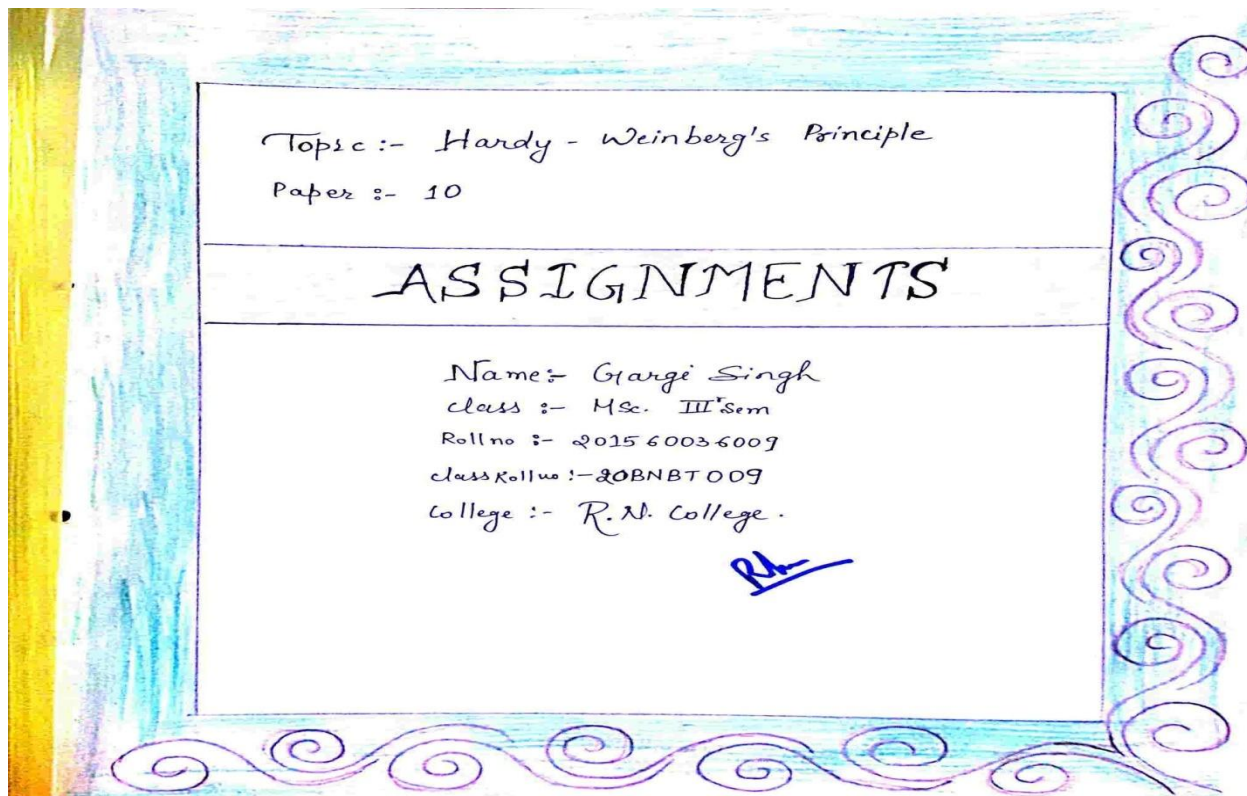 Topic :- Hardy - Weinberg's Principle
Paper :- 10
ASSIGNMENTS
Name:- Gargi Singh
class :- MSc. III Sem
Roll no :- 201560036009
class Roll no :- 20BNBT009
College :- R.N. College.